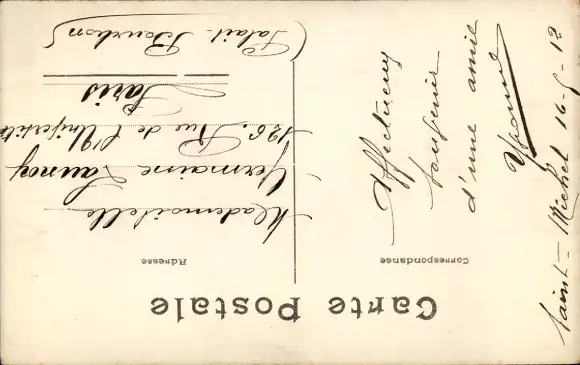 Carte Postale
Correspondance
Adresse
Saint-Michel 16-9-12
Affectueux
Souvenir
d'une amie
Yvonne
Mademoiselle
Germaine Launoy
126, Rue de l'Université
Paris
(Palais-Bourbon)